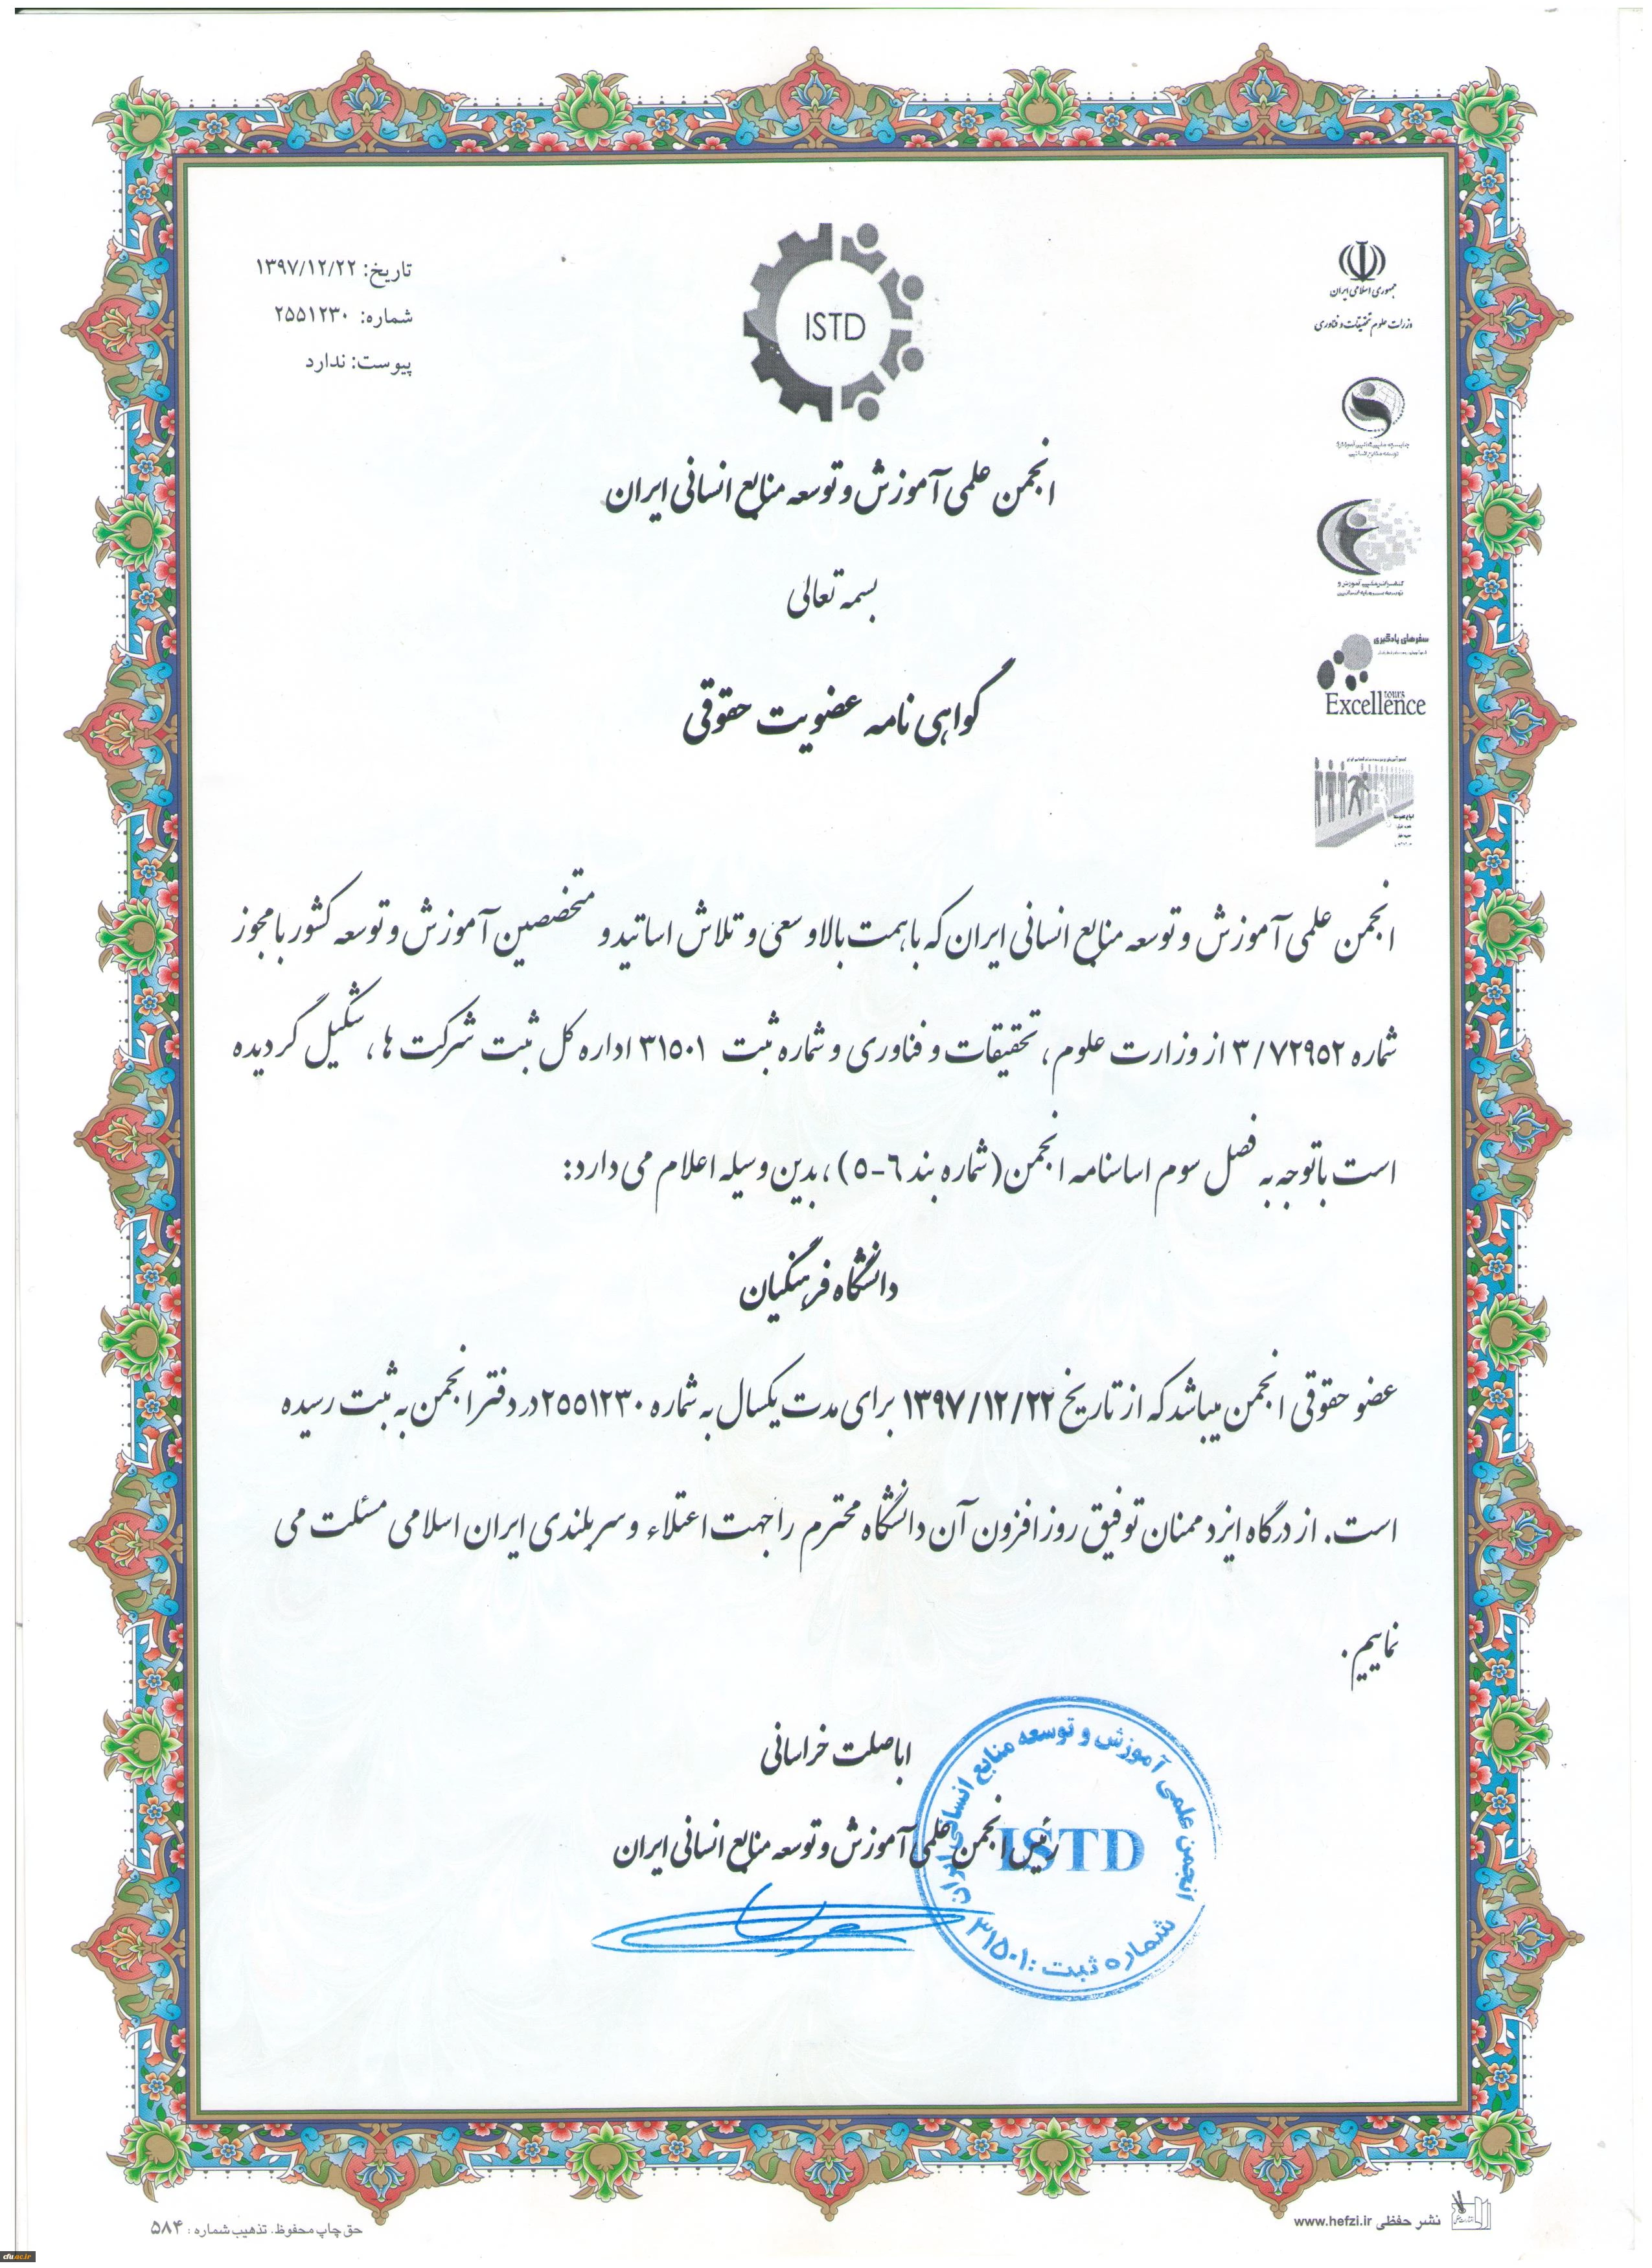 تاریخ: ۱۳۹۷/۱۲/۲۲
شماره: ۲۵۵۱۲۳۰
پیوست: ندارد
ISTD
جمهوری اسلامی ایران
وزارت علوم تحقیقات و فناوری
توسعه منابع انسانی
کنفرانس ملی آموزش و
توسعه سرمایه انسانی
سفرهای یادگیری
tours
Excellence
انجمن علمی آموزش و توسعه منابع انسانی ایران
بسمه تعالی
گواهی نامه عضویت حقوقی
انجمن علمی آموزش و توسعه منابع انسانی ایران که با همت بالا و سعی و تلاش اساتید و متخصصین آموزش و توسعه کشور با مجوز
شماره ۳/۷۲۹۵۲ از وزارت علوم ، تحقیقات و فناوری و شماره ثبت ۳۱۵۰۱ اداره کل ثبت شرکت ها ، تشکیل گردیده
است با توجه به فصل سوم اساسنامه انجمن (شماره بند ۶-۵) ، بدین وسیله اعلام می دارد:
دانشگاه فرهنگیان
عضو حقوقی انجمن میباشد که از تاریخ ۱۳۹۷/۱۲/۲۲ برای مدت یکسال به شماره ۲۵۵۱۲۳۰ در دفتر انجمن به ثبت رسیده
است. از درگاه ایزد ممنان توفیق روز افزون آن دانشگاه محترم را جهت اعتلاء و سربلندی ایران اسلامی مسئلت می
نماییم.
اباصلت خراسانی
رئیس انجمن علمی آموزش و توسعه منابع انسانی ایران
انجمن علمی آموزش و توسعه منابع انسانی ایران
ISTD
شماره ثبت : ۳۱۵۰۱
حق چاپ محفوظ. تذهیب شماره : ۵۸۴
نشر حفظی www.hefzi.ir
cfu.ac.ir